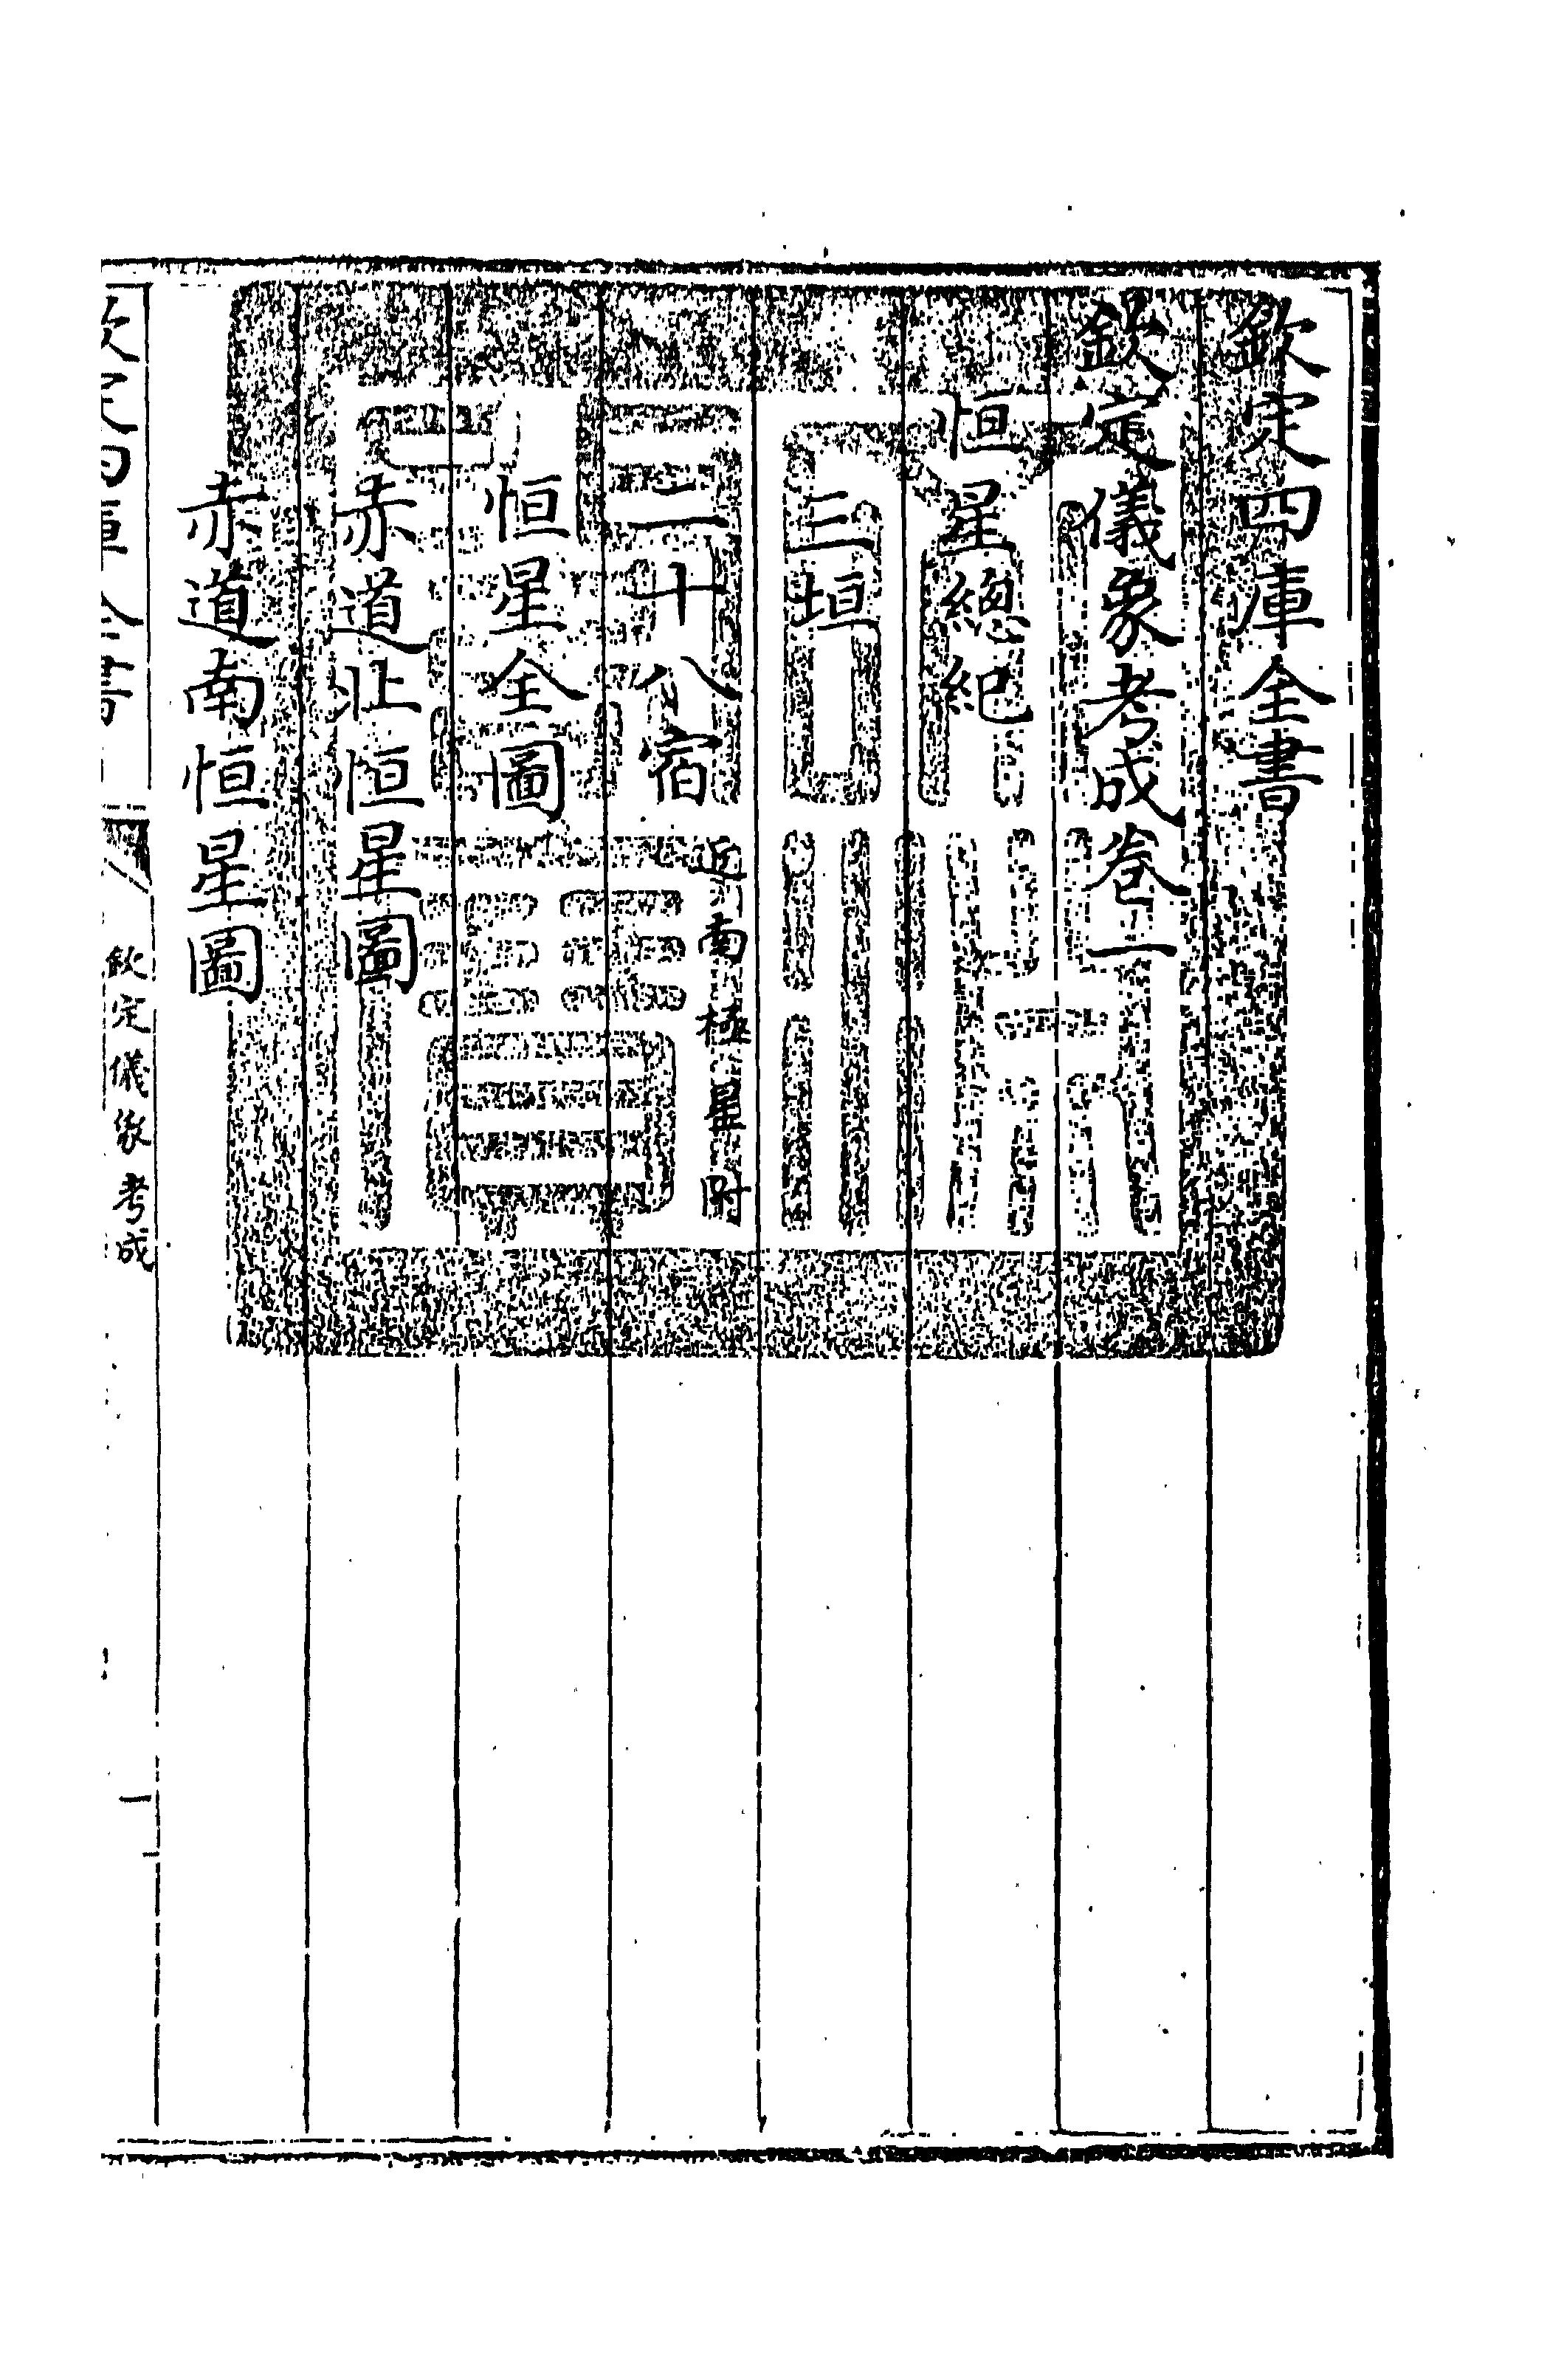 欽定四庫全書
欽定儀象考成卷一
恒星總紀
三垣
二十八宿近南極星附
恒星全圖
赤道北恒星圖
赤道南恒星圖
欽定四庫全書
欽定儀象考成
一